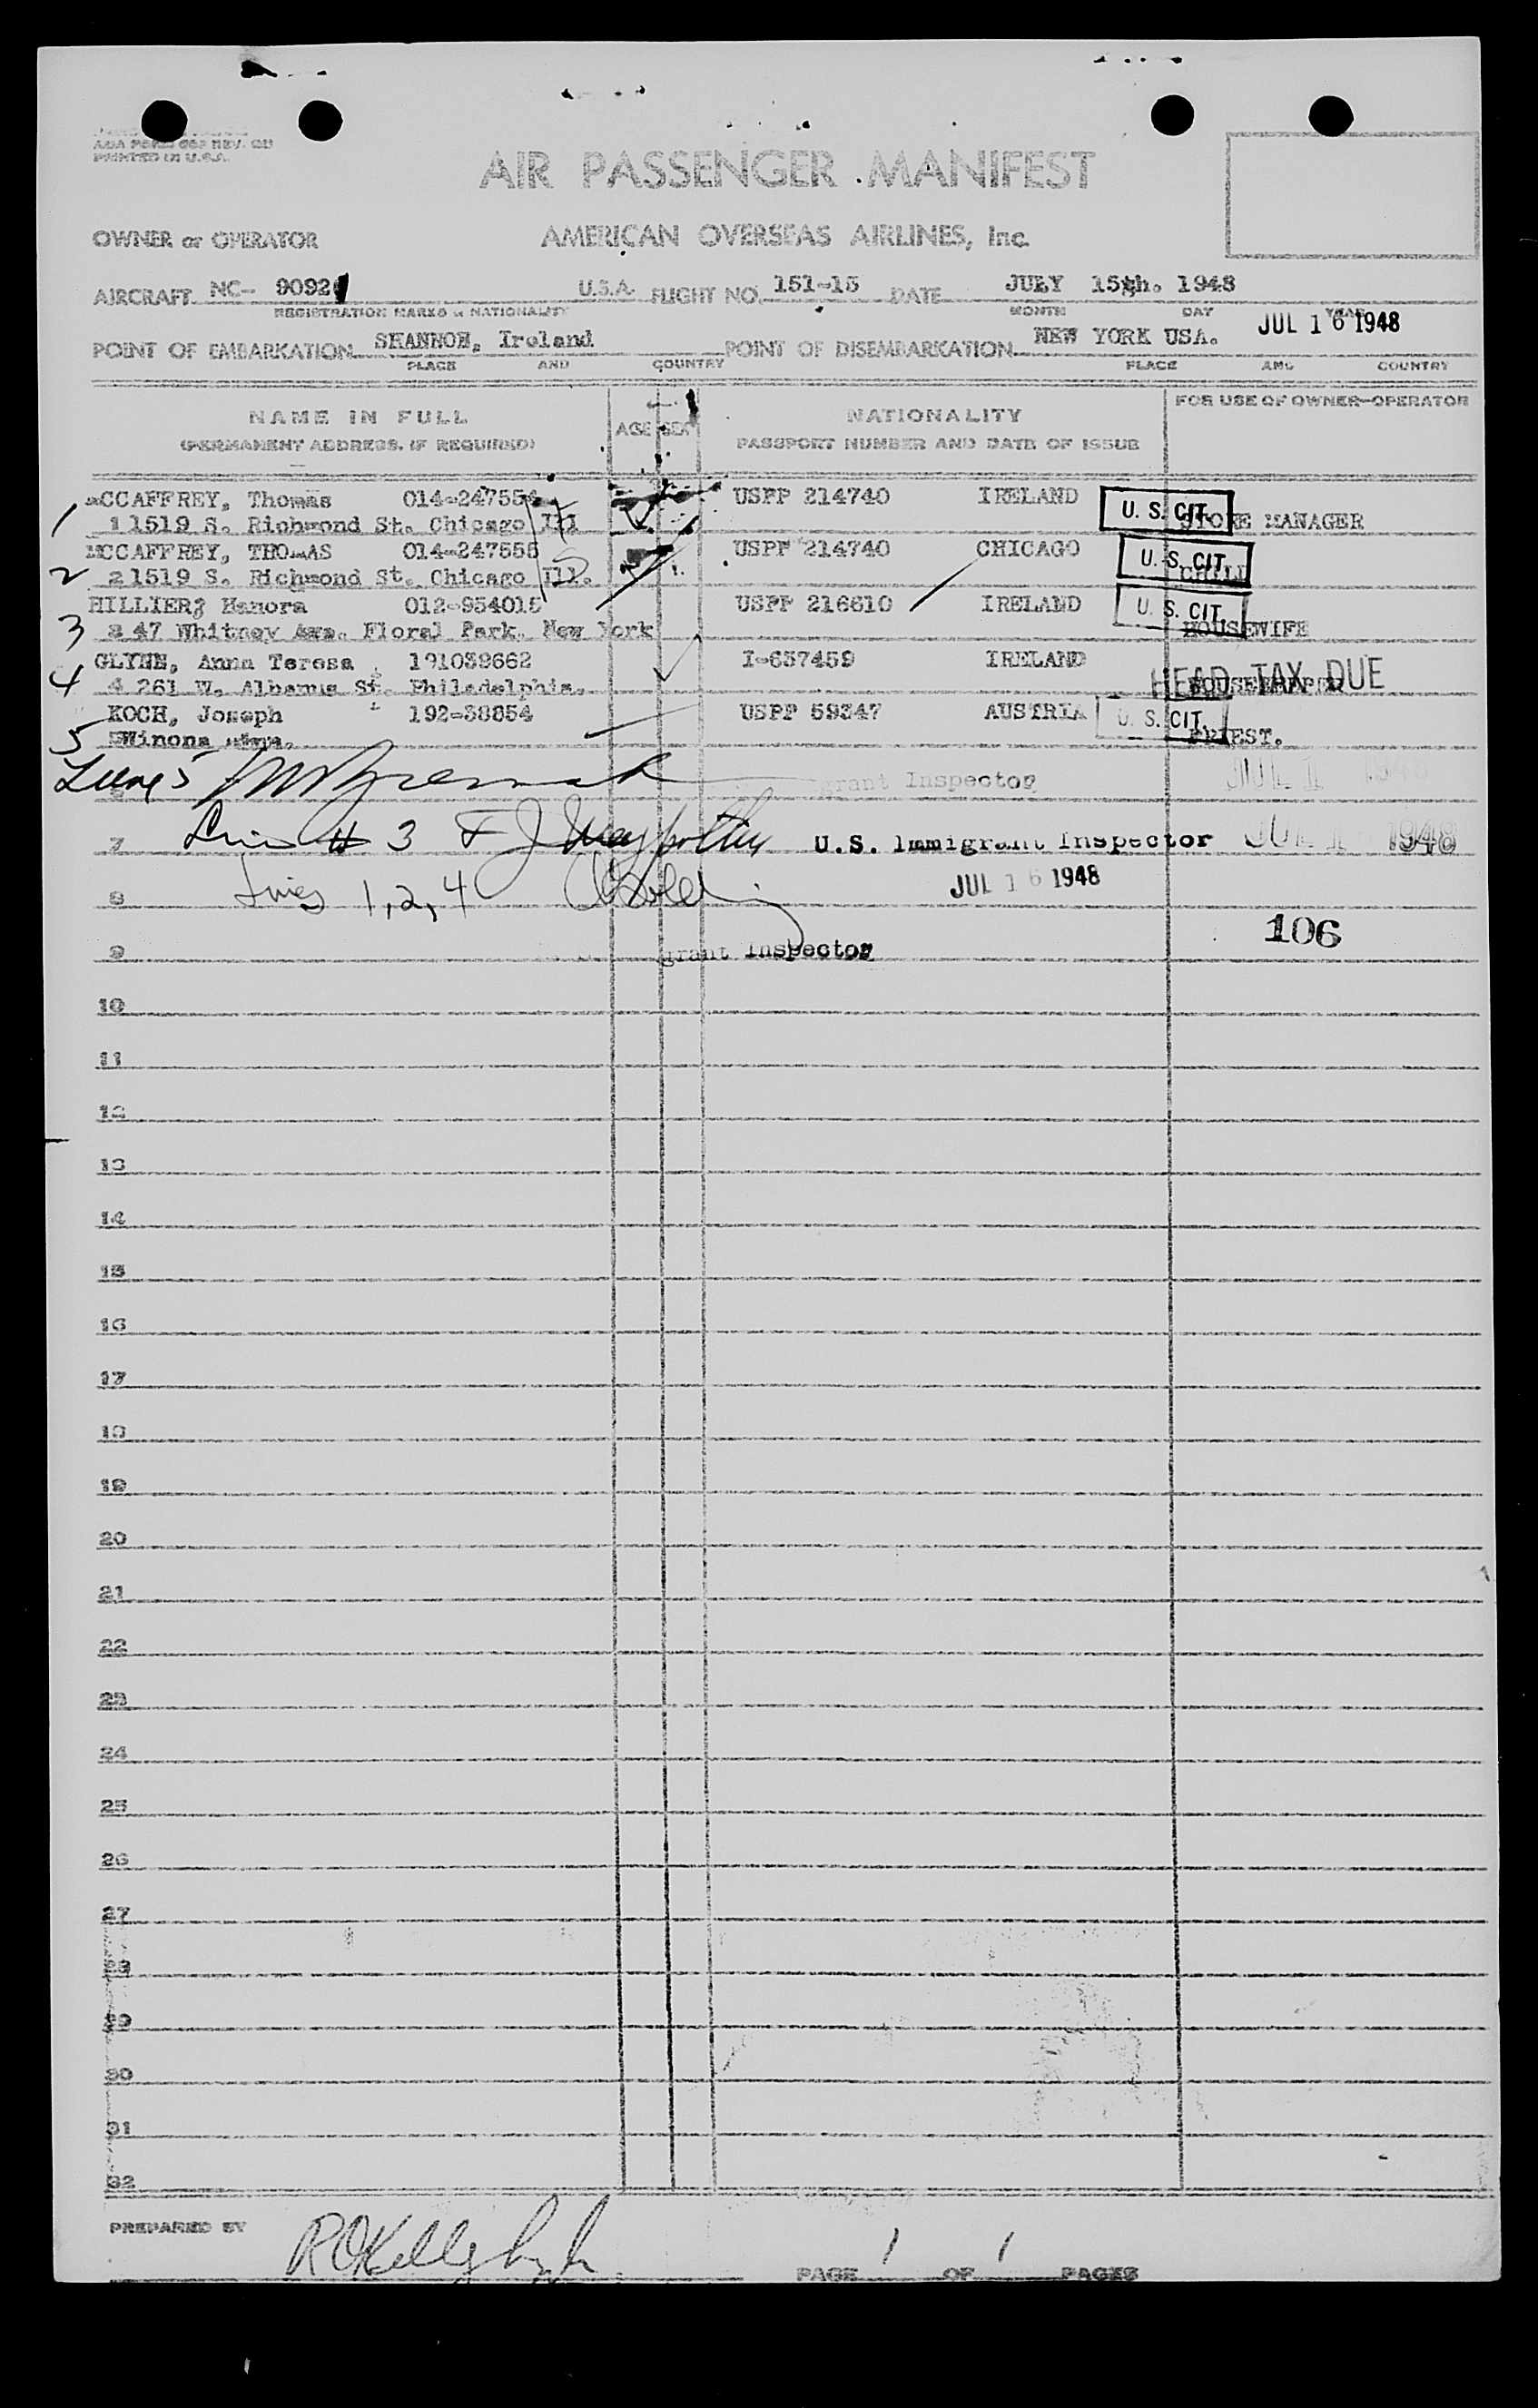 PRINTED IN U.S.A.
AIR PASSENGER MANIFEST
OWNER or OPERATOR AMERICAN OVERSEAS AIRLINES, Inc.
AIRCRAFT NC- 9092 U.S.A. FLIGHT NO. 151-15 DATE JULY 15th. 1948
REGISTRATION MARKS & NATIONALITY MONTH DAY YEAR
JUL 16 1948
POINT OF EMBARKATION SHANNON, Ireland POINT OF DISEMBARKATION NEW YORK USA.
PLACE AND COUNTRY PLACE AND COUNTRY
NAME IN FULL AGE SEX NATIONALITY FOR USE OF OWNER-OPERATOR
(PERMANENT ADDRESS, IF REQUIRED) PASSPORT NUMBER AND DATE OF ISSUE
MCCAFFREY, Thomas 014-247554 USPP 214740 IRELAND U. S. CIT.
1 1 1519 S. Richmond St. Chicago Ill STORE MANAGER
MCCAFFREY, THOMAS 014-247555 USPP 214740 CHICAGO U. S. CIT.
2 2 1519 S. Richmond St. Chicago Ill. CHILD
HILLIER, Hanora 012-954015 USPP 216610 IRELAND U. S. CIT.
3 47 Whitney Ave. Floral Park, New York HOUSEWIFE
GLYNN, Anna Teresa 191039662 I-637459 IRELAND
4 4 261 W. Albanus St. Philadelphia. HEAD TAX DUE
KOCH, Joseph 192-38854 USPP 59347 AUSTRIA U. S. CIT.
5 Winona PRIEST.
Line 5 grant Inspector JUL 1 1948
7 Line # 3 U.S. Immigrant Inspector JUL 1 1948
8 Lines 1, 2, 4 JUL 16 1948
106
9 grant Inspector
10
11
12
13
14
15
16
17
18
19
20
21
22
23
24
25
26
27
28
29
30
31
32
PREPARED BY
PAGE 1 OF 1 PAGES